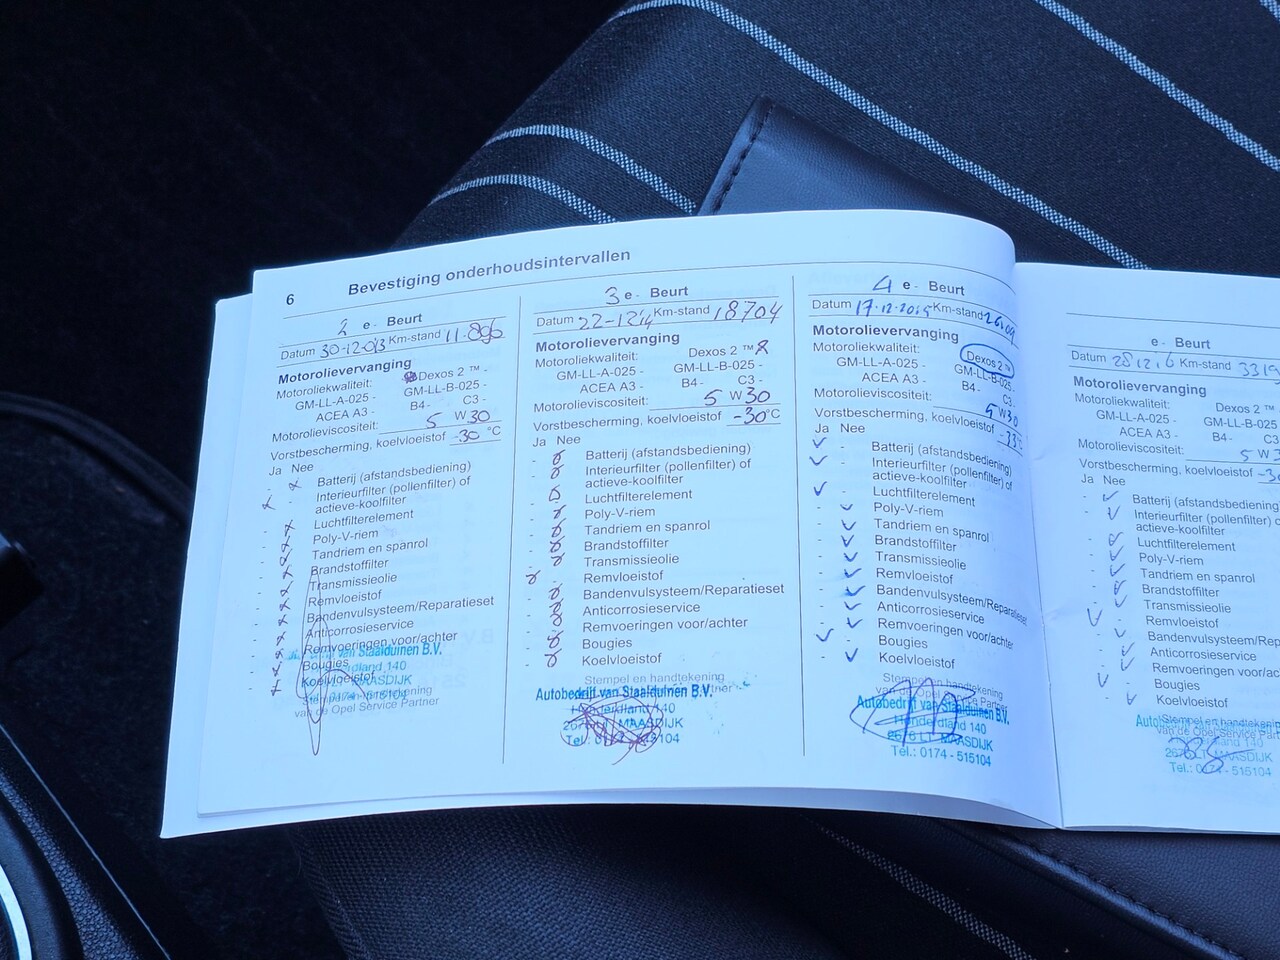 6 Bevestiging onderhoudsintervallen
2 e - Beurt
Datum 30-12-013 Km-stand 11.896
Motorolievervanging
Motoroliekwaliteit: Dexos 2 ™ -
GM-LL-A-025 - GM-LL-B-025 -
ACEA A3 - B4 - C3 -
Motorolieviscositeit: 5 W 30
Vorstbescherming, koelvloeistof -30 °C
Ja Nee
Batterij (afstandsbediening)
Interieurfilter (pollenfilter) of
actieve-koolfilter
Luchtfilterelement
Poly-V-riem
Tandriem en spanrol
Brandstoffilter
Transmissieolie
Remvloeistof
Bandenvulsysteem/Reparatieset
Anticorrosieservice
Remvoeringen voor/achter
Bougies
Koelvloeistof
van Staalduinen B.V.
140
MAASDIJK
Stempel en handtekening
van de Opel Service Partner
3 e - Beurt
Datum 22-12-14 Km-stand 18704
Motorolievervanging
Motoroliekwaliteit: Dexos 2 ™
GM-LL-A-025 - GM-LL-B-025 -
ACEA A3 - B4 - C3 -
Motorolieviscositeit: 5 W 30
Vorstbescherming, koelvloeistof -30 °C
Ja Nee
Batterij (afstandsbediening)
Interieurfilter (pollenfilter) of
actieve-koolfilter
Luchtfilterelement
Poly-V-riem
Tandriem en spanrol
Brandstoffilter
Transmissieolie
Remvloeistof
Bandenvulsysteem/Reparatieset
Anticorrosieservice
Remvoeringen voor/achter
Bougies
Koelvloeistof
Stempel en handtekening
Autobedrijf van Staalduinen B.V.
140
MAASDIJK
Tel.: 0174 - 515104
4 e - Beurt
Datum 17-12-2015 Km-stand
Motorolievervanging
Motoroliekwaliteit: Dexos 2 ™
GM-LL-A-025 - GM-LL-B-025 -
ACEA A3 - B4 - C3 -
Motorolieviscositeit: 5 W 30
Vorstbescherming, koelvloeistof
Ja Nee
Batterij (afstandsbediening)
Interieurfilter (pollenfilter) of
actieve-koolfilter
Luchtfilterelement
Poly-V-riem
Tandriem en spanrol
Brandstoffilter
Transmissieolie
Remvloeistof
Bandenvulsysteem/Reparatieset
Anticorrosieservice
Remvoeringen voor/achter
Bougies
Koelvloeistof
Stempel en handtekening
Autobedrijf van Staalduinen B.V.
Honderdland 140
2676 LT MAASDIJK
Tel.: 0174 - 515104
e - Beurt
Datum Km-stand 3319
Motorolievervanging
Motoroliekwaliteit: Dexos 2
GM-LL-A-025 - GM-LL-B-025
ACEA A3 - B4 - C3
Motorolieviscositeit: 5 W 3
Vorstbescherming, koelvloeistof -3
Ja Nee
Batterij (afstandsbediening
Interieurfilter (pollenfilter) o
actieve-koolfilter
Luchtfilterelement
Poly-V-riem
Tandriem en spanrol
Brandstoffilter
Transmissieolie
Remvloeistof
Bandenvulsysteem/Rep
Anticorrosieservice
Remvoeringen voor/ac
Bougies
Koelvloeistof
Stempel en handtekening
van de Opel Service Part
140
2676 LT MAASDIJK
Tel.: 0174 - 515104